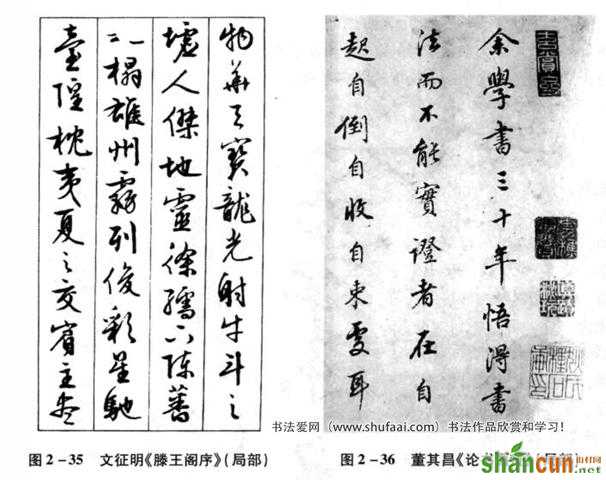 物華天寶龍光射牛斗之
墟人傑地靈徐孺下陳蕃
之榻雄州霧列俊彩星馳
臺隍枕夷夏之交賓主盡
余學書三十年悟得書
法而不能實證者在自
起自倒自收自束處耳
书法爱网（www.shufaai.com）书法作品欣赏和学习！
图2-35 文征明《滕王阁序》(局部)
图2-36 董其昌《论
shancun